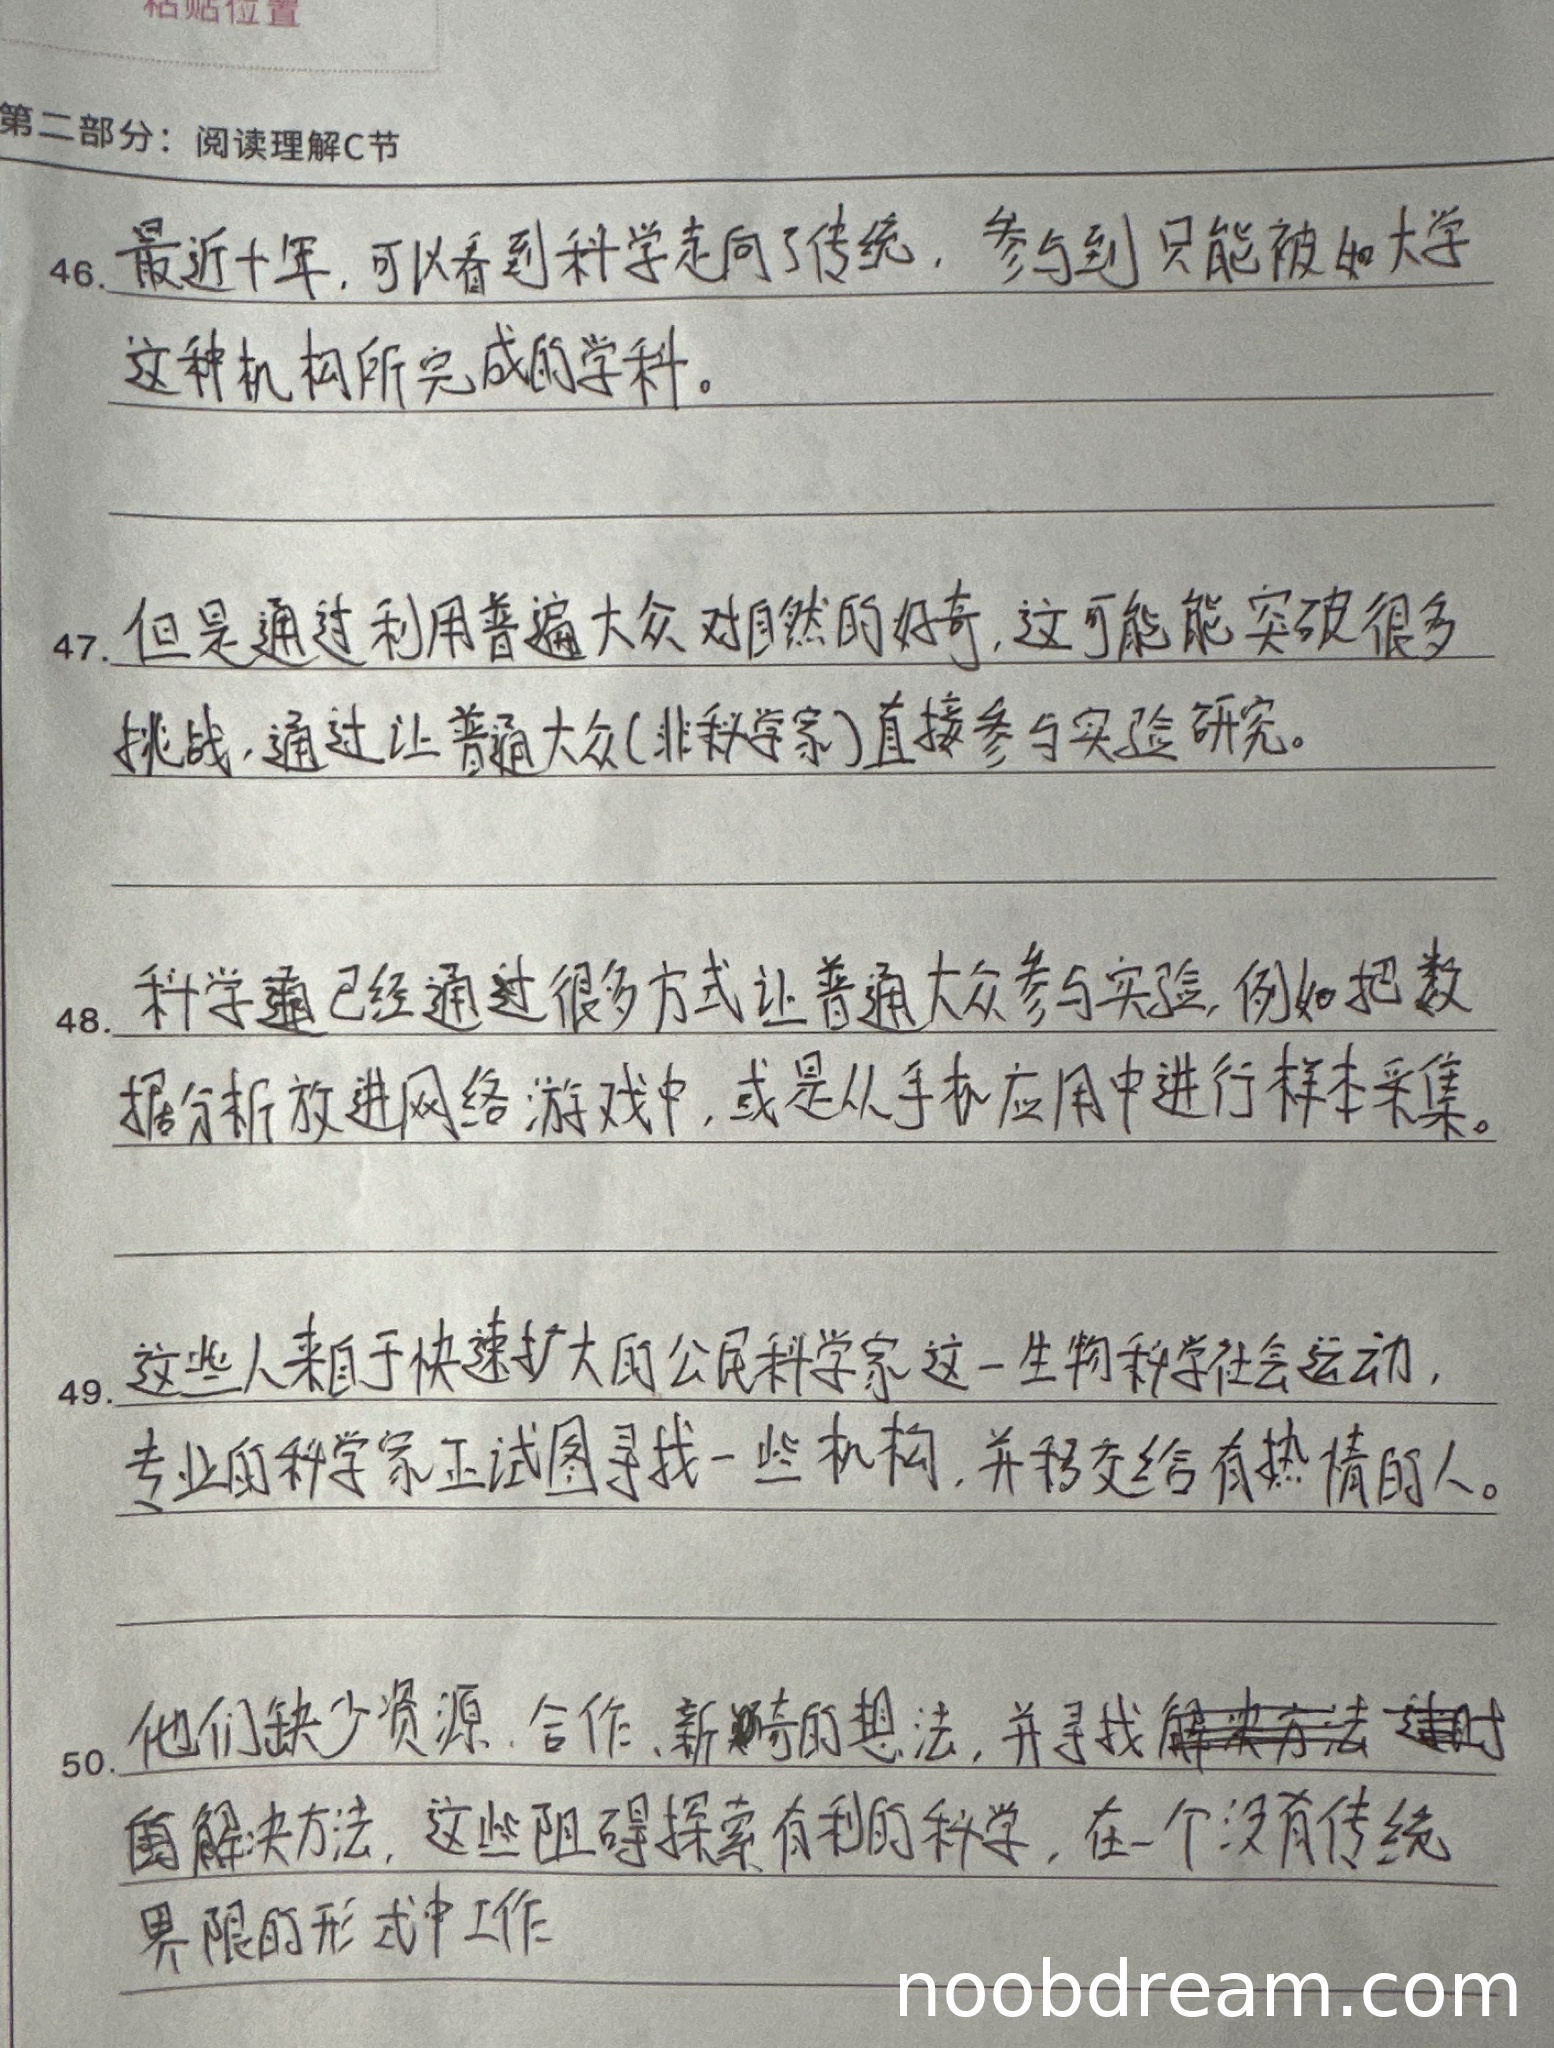 粘贴位置
第二部分：阅读理解C节
46. 最近十年，可以看到科学走向了传统，参与到只能被如大学
这种机构所完成的学科。
47. 但是通过利用普遍大众对自然的好奇，这可能能突破很多
挑战，通过让普通大众(非科学家)直接参与实验研究。
48. 科学 已经通过很多方式让普通大众参与实验，例如把数
据分析放进网络游戏中，或是从手机应用中进行样本采集。
49. 这些人来自于快速扩大的公民科学家这一生物科学社会运动，
专业的科学家正试图寻找一些机构，并移交给有热情的人。
50. 他们缺少资源、合作、新奇的想法，并寻找
的解决方法，这些阻碍探索有利的科学，在一个没有传统
界限的形式中工作
noobdream.com